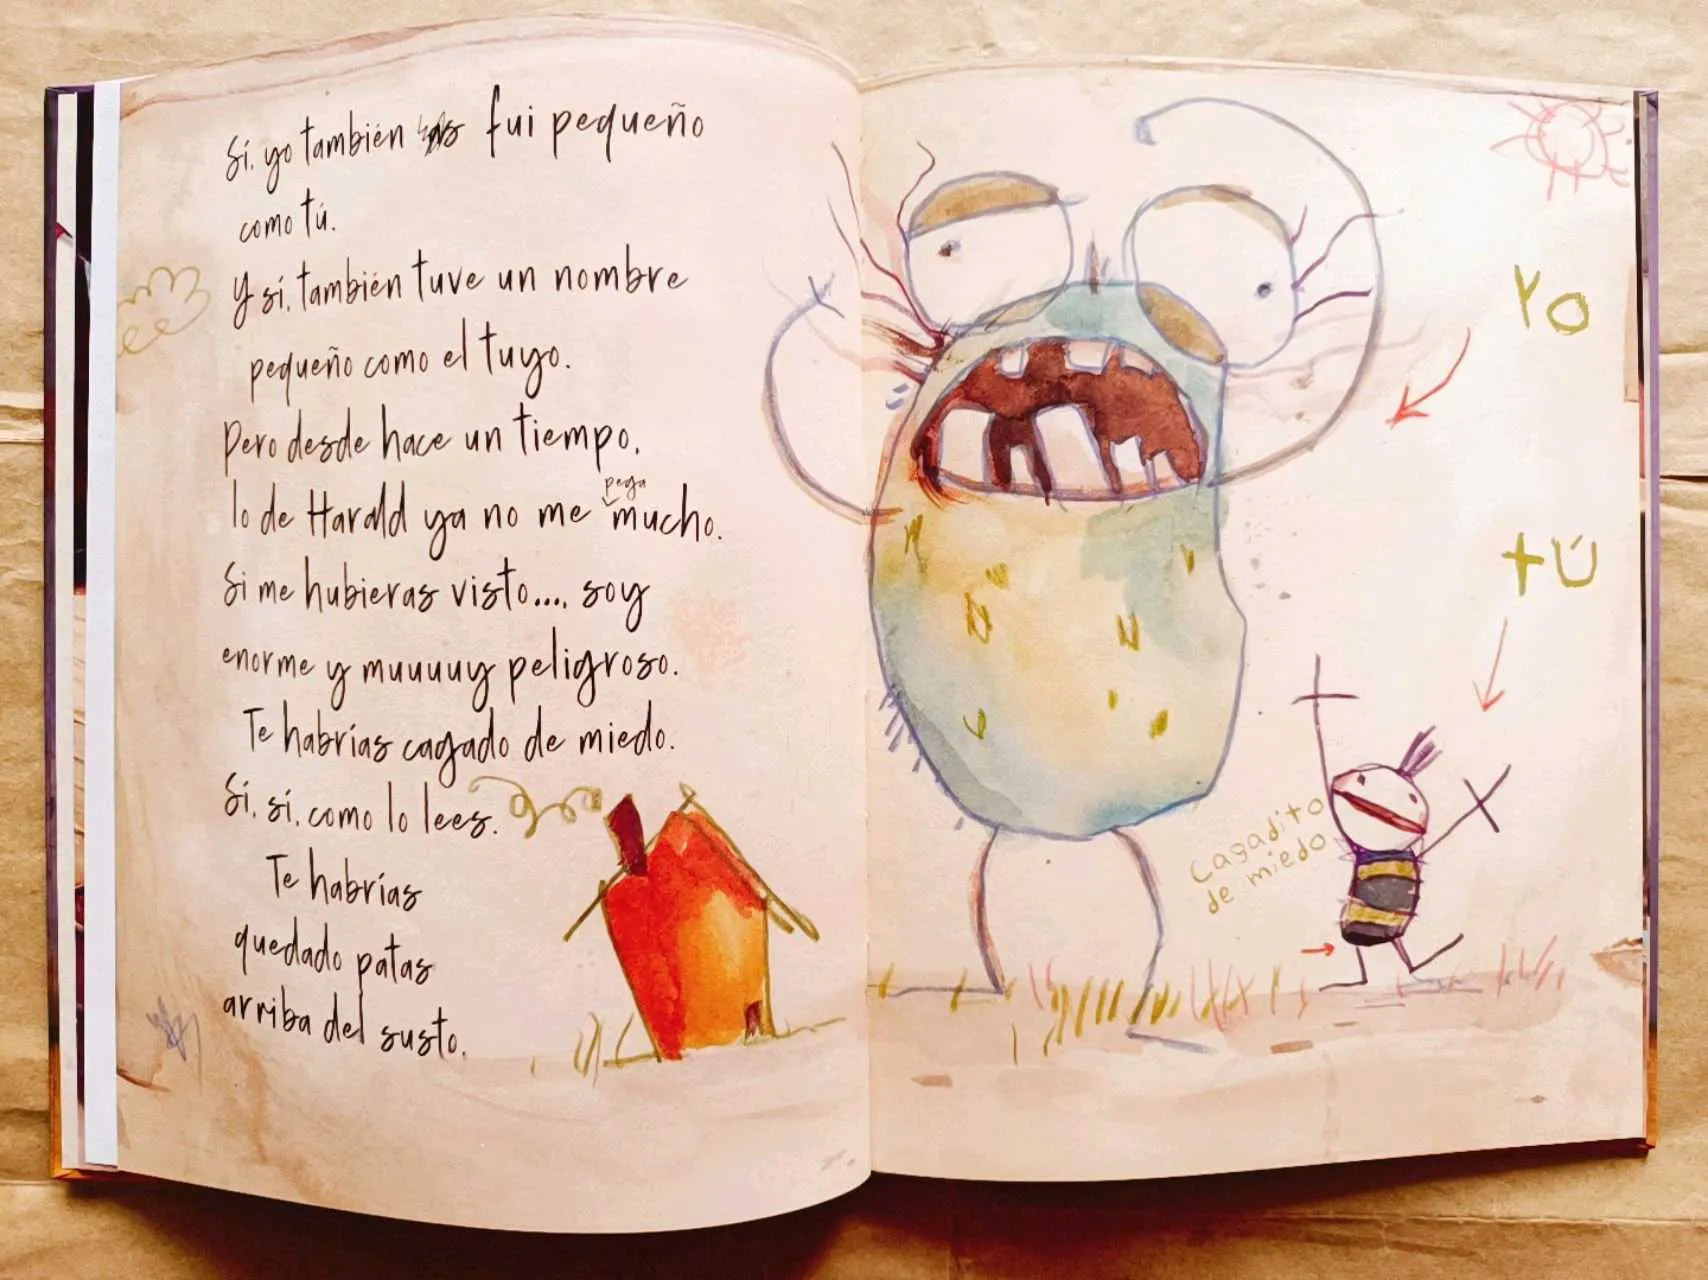 Sí, yo también fui pequeño
como tú.
Y sí, también tuve un nombre
pequeño como el tuyo.
Pero desde hace un tiempo,
pega
lo de Harald ya no me mucho.
Si me hubieras visto..., soy
enorme y muuuuy peligroso.
Te habrías cagado de miedo.
Sí, sí, como lo lees.
Te habrías
quedado patas
arriba del susto.
YO
tÚ
Cagadito
de miedo